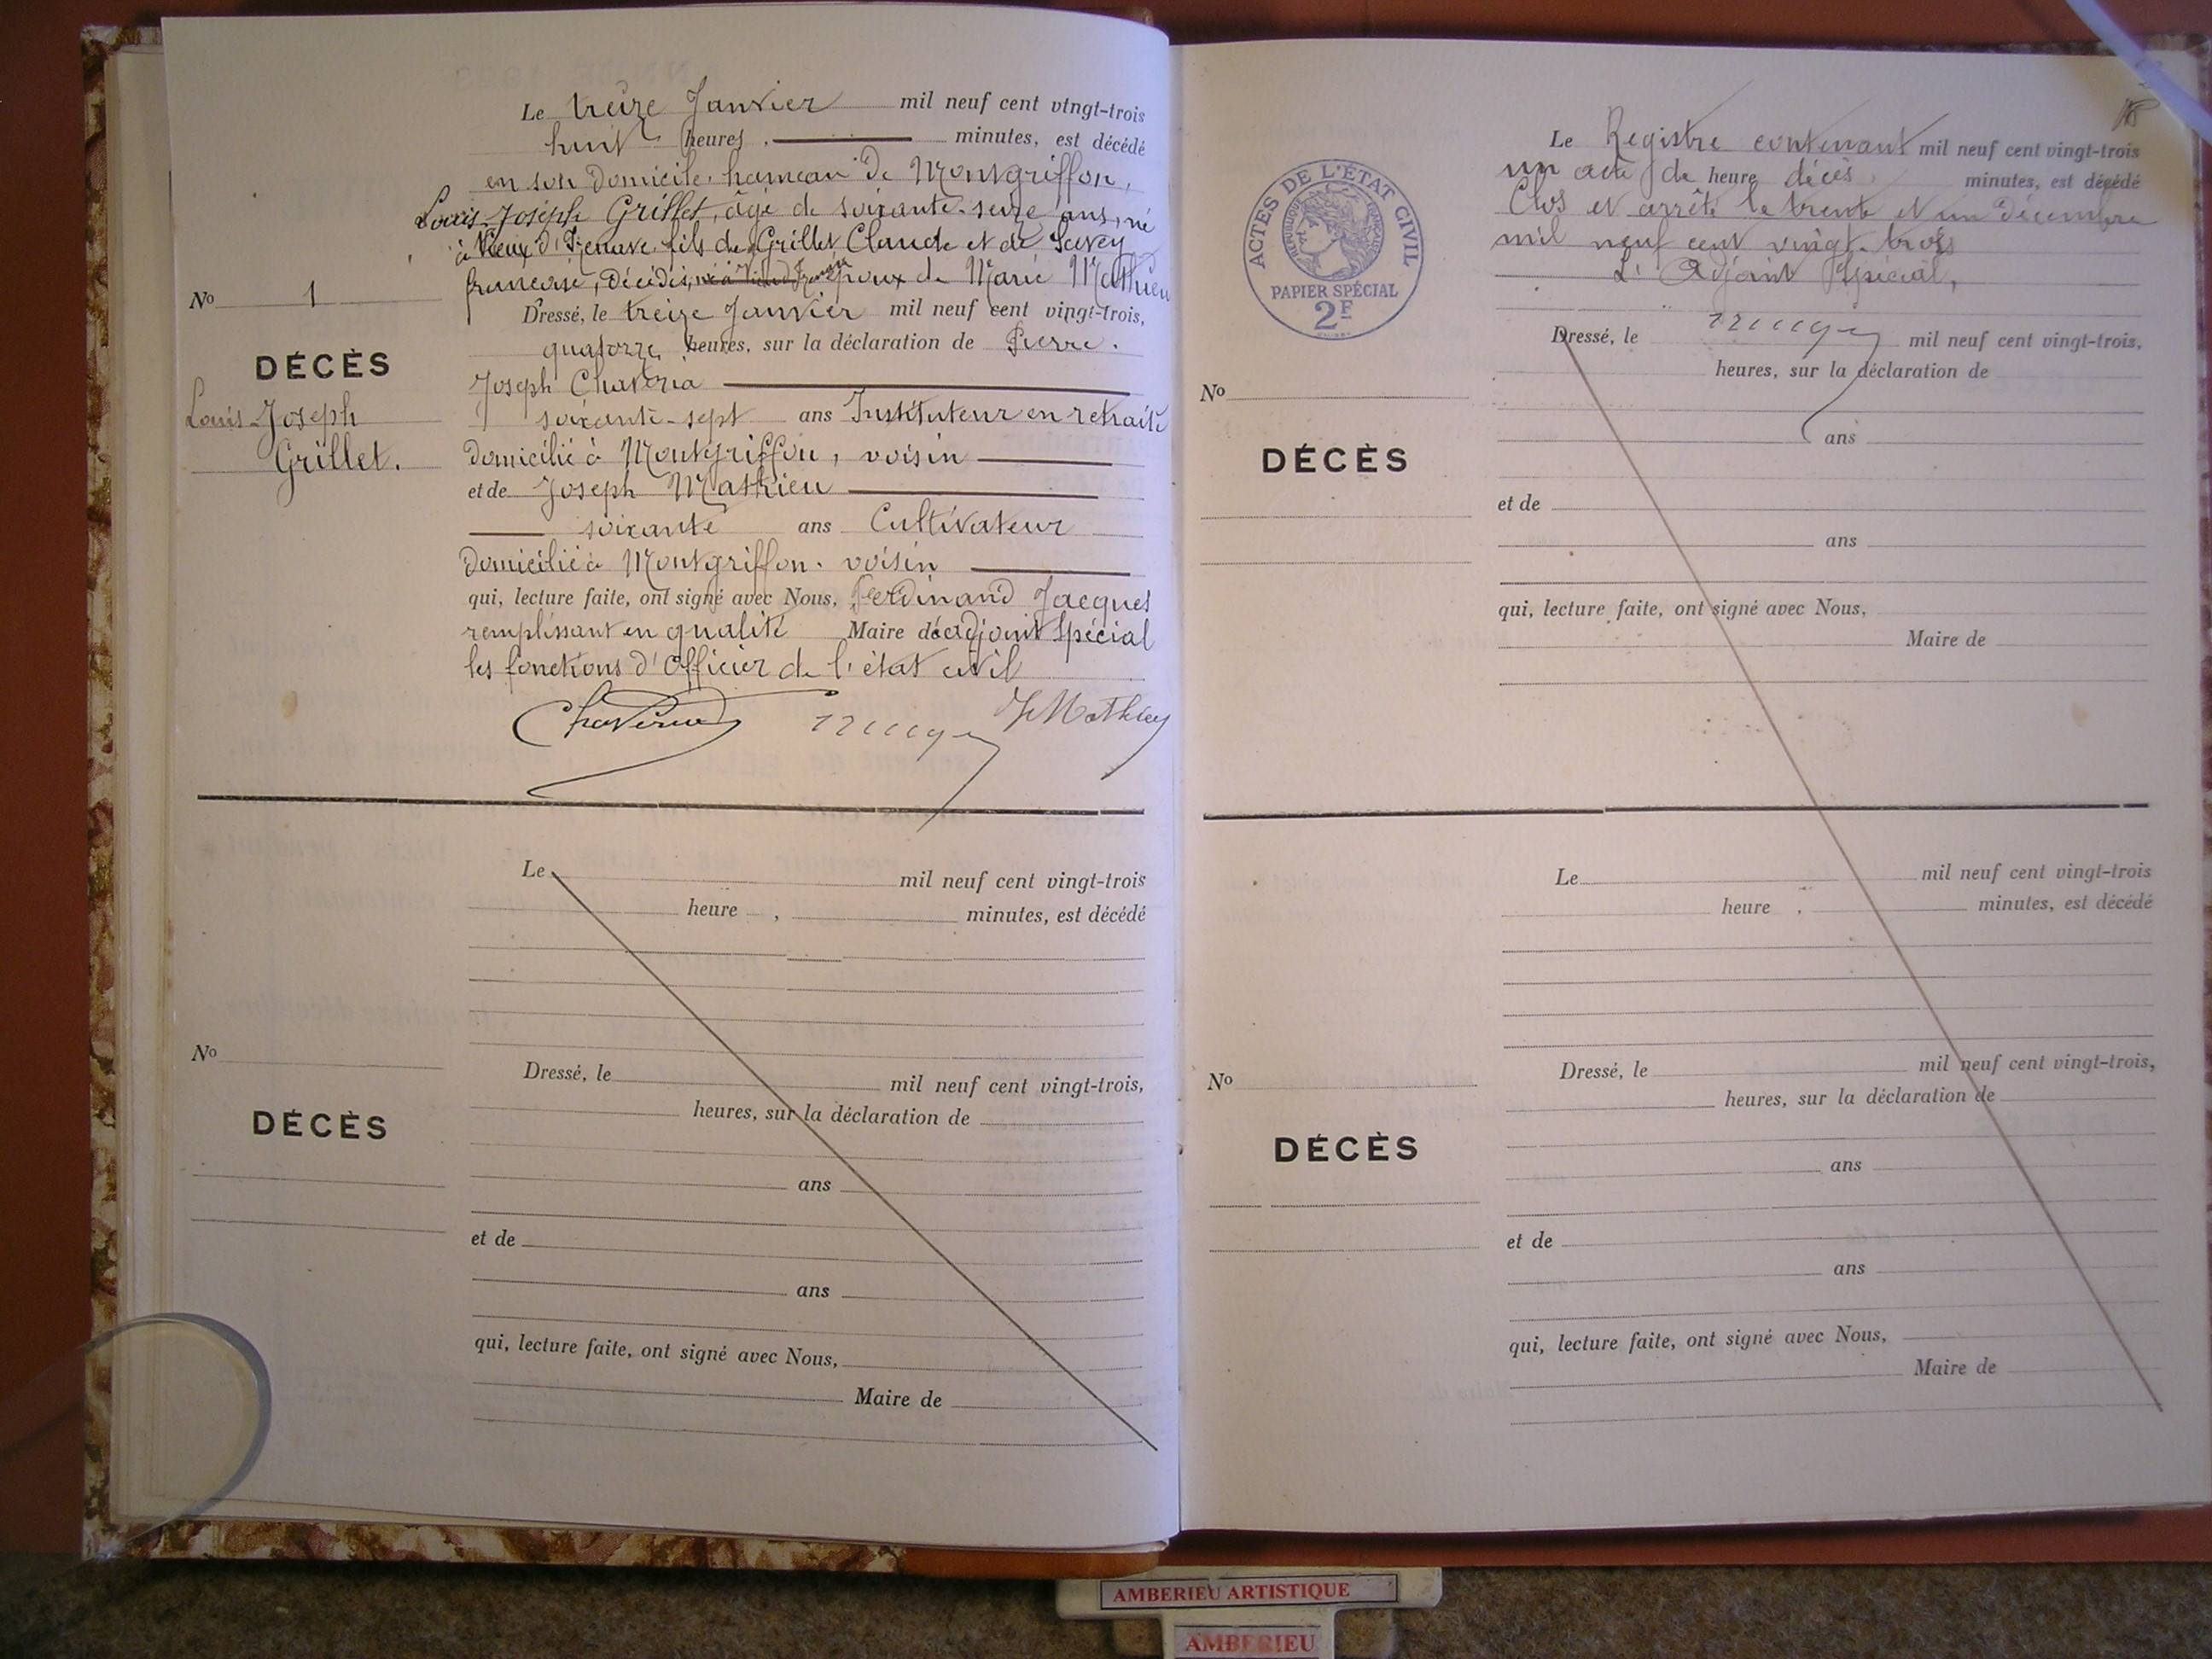 Le treize Janvier mil neuf cent vingt-trois
huit heures, minutes, est décédé
en son domicile, hameau de Montgriffon,
Louis-Joseph Grillet, âgé de soixante-seize ans, né
à Vieux d'Izenave, fils de Grillet Claude et de Savey
francoise, décédés, époux de Marie Mathieu
No 1
DÉCÈS
Louis-Joseph
Grillet.
Dressé, le treize Janvier mil neuf cent vingt-trois,
quatorze heures, sur la déclaration de Pierre.
Joseph Chavéria
soixante-sept ans Instituteur en retraite
domicilié à Montgriffon, voisin
et de Joseph Mathieu
soixante ans Cultivateur
domicilié à Montgriffon. voisin
qui, lecture faite, ont signé avec Nous, Ferdinand Jacques
remplissant en qualité Maire de adjoint Spécial
les fonctions d'officier de l'état civil
JMathieu
Le mil neuf cent vingt-trois
heure , minutes, est décédé
No
DÉCÈS
Dressé, le mil neuf cent vingt-trois,
heures, sur la déclaration de
ans
et de
ans
qui, lecture faite, ont signé avec Nous,
Maire de
ACTES DE L'ÉTAT CIVIL
RÉPUBLIQUE FRANÇAISE
PAPIER SPÉCIAL
2F
Le Registre contenant mil neuf cent vingt-trois
un acte de heure décès minutes, est décédé
Clos et arrêté le trente et un décembre
mil neuf cent vingt-trois
L'Adjoint Spécial,
No
DÉCÈS
Dressé, le mil neuf cent vingt-trois,
heures, sur la déclaration de
ans
et de
ans
qui, lecture faite, ont signé avec Nous,
Maire de
Le mil neuf cent vingt-trois
heure , minutes, est décédé
No
DÉCÈS
Dressé, le mil neuf cent vingt-trois,
heures, sur la déclaration de
ans
et de
ans
qui, lecture faite, ont signé avec Nous,
Maire de
AMBERIEU ARTISTIQUE
AMBERIEU